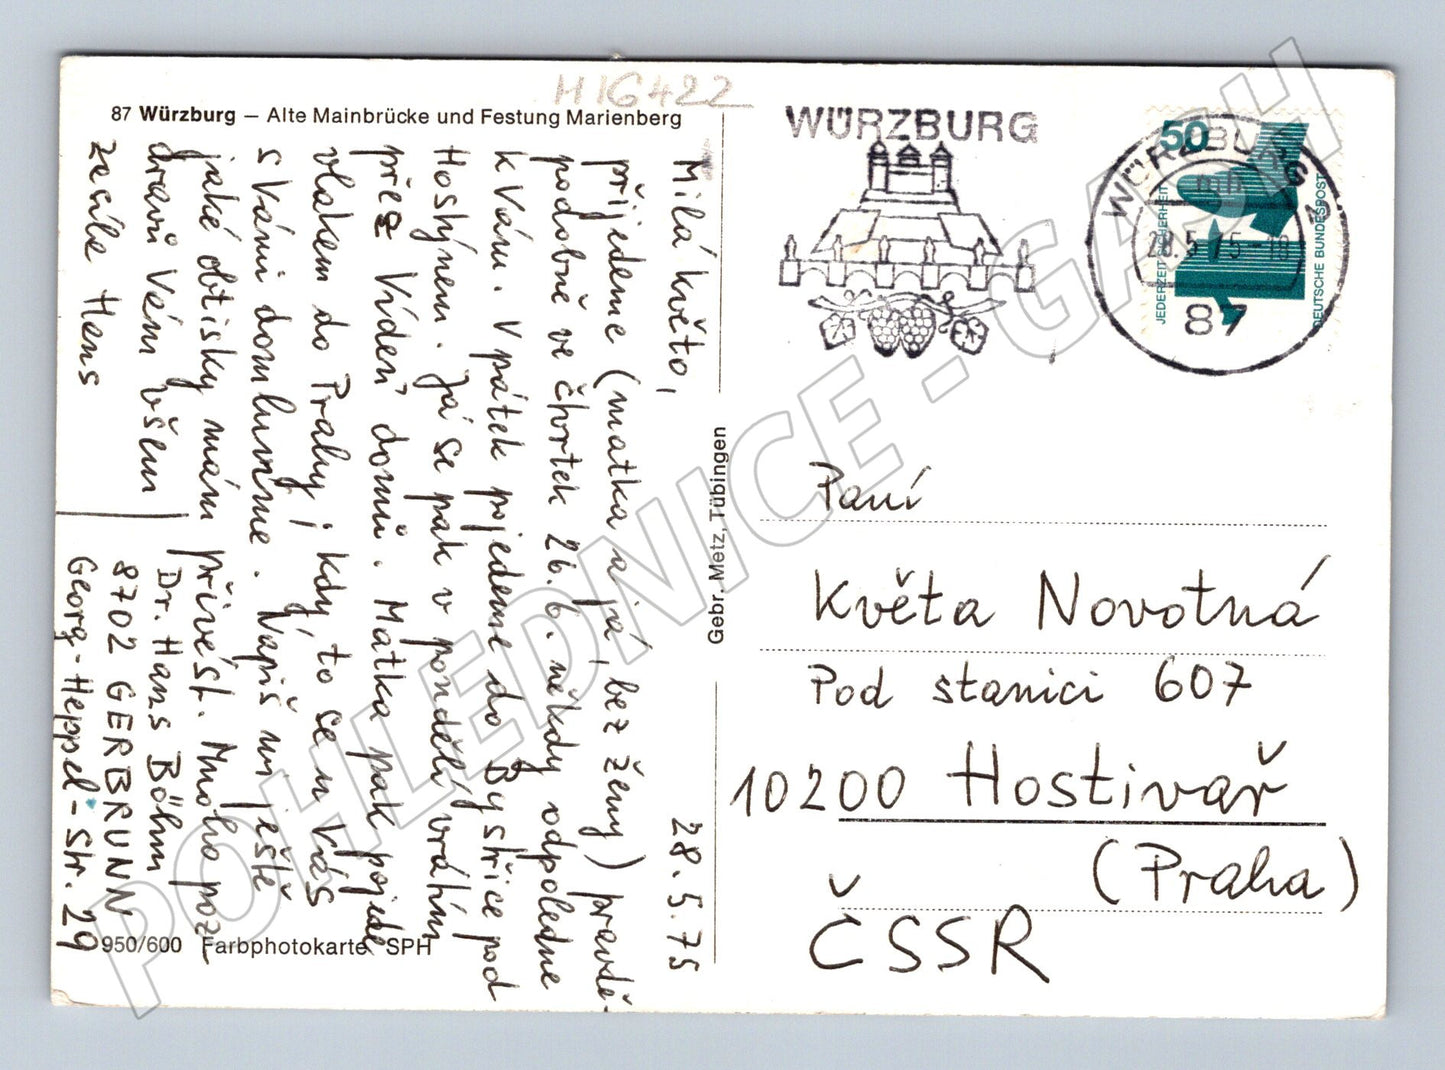 H16422
87 Würzburg – Alte Mainbrücke und Festung Marienberg
Milá Květo, 28.5.75
přijedeme (matka a já, bez ženy) pravdě-
podobně ve čtvrtek 26.6. někdy odpoledne
k Vám. V pátek pojedeme do Bystřice pod
Hostýnem. Já se pak v pondělí vrátím
přes Vídeň domů. Matka pak pojede
vlakem do Prahy i kdy, to se u Vás
s Vámi domluvíme. Napiš mi ještě
jaké obtisky mám přivést. Mnoho poz-
dravů Vám všem
zasíle Hans
Dr. Hans Böhm
8702 GERBRUNN
Georg-Heppel-Str. 29
950/600 Farbphotokarte SPH
Gebr. Metz, Tübingen
WÜRZBURG
WÜRZBURG 2
mb
28.5.75-18
87
50
JEDERZEIT SICHERHEIT
DEUTSCHE BUNDESPOST
Paní
Květa Novotná
Pod stanici 607
10200 Hostivař
(Praha)
ČSSR
POHLEDNICE - GASH